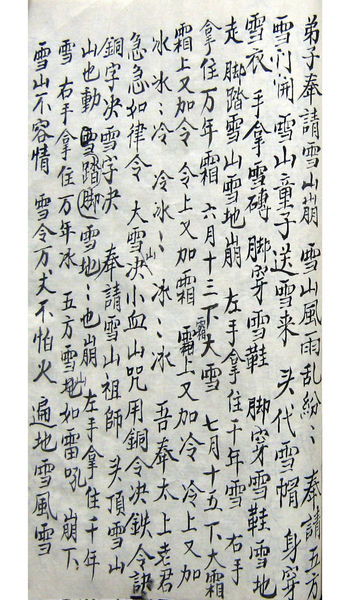 弟子奉請雪山崩 雪山風雨乱紛〻 奉請五方
雪门開 雪山童子送雪来 头代雪帽 身穿
雪衣 手拿雪磚 脚穿雪鞋 脚穿雪鞋雪地
走 脚踏雪山雪地崩 左手拿住千年雪 右手
拿住万年霜 六月十三下大雪 七月十五下大霜
霜上又加令 令上又加霜 霜上又加冷 冷上又加
冰 冰〻冷 冷冰〻冰〻冰 吾奉太上老君
急急如律令 大雪山决小血山咒用銅令决鉄令訣
銅字决雪字决 奉請雪山祖師 头頂雪山
山也動 踏脚雪地〻也崩 左手拿住千年
雪 右手拿住万年冰 五方雪山地如雷吼 崩下
雪山不容情 雪令万丈不怕火 遍地雪風雪